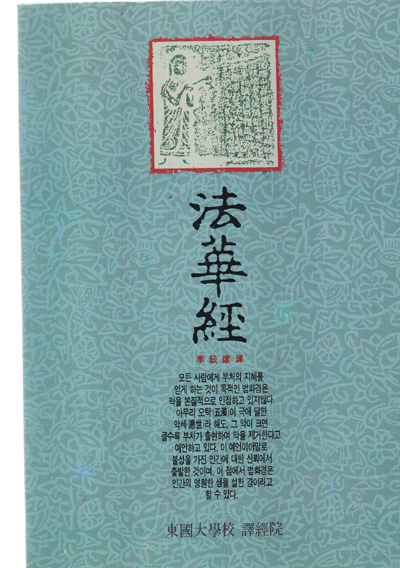 法華經
李耘虛譯
모든 사람에게 부처의 지혜를
얻게 하는 것이 목적인 법화경은
악을 본질적으로 인정하고 있지않다.
아무리 오탁(五濁)이 극에 달한
악세(惡世)라 해도, 그 악이 크면
클수록 부처가 출현하여 악을 제거한다고
예언하고 있다. 이 예언이야말로
불성을 가진 인간에 대한 신뢰에서
출발한 것이며, 이 점에서 법화경은
인간의 영원한 생을 설한 경이라고
할 수 있다.
東國大學校 譯經院